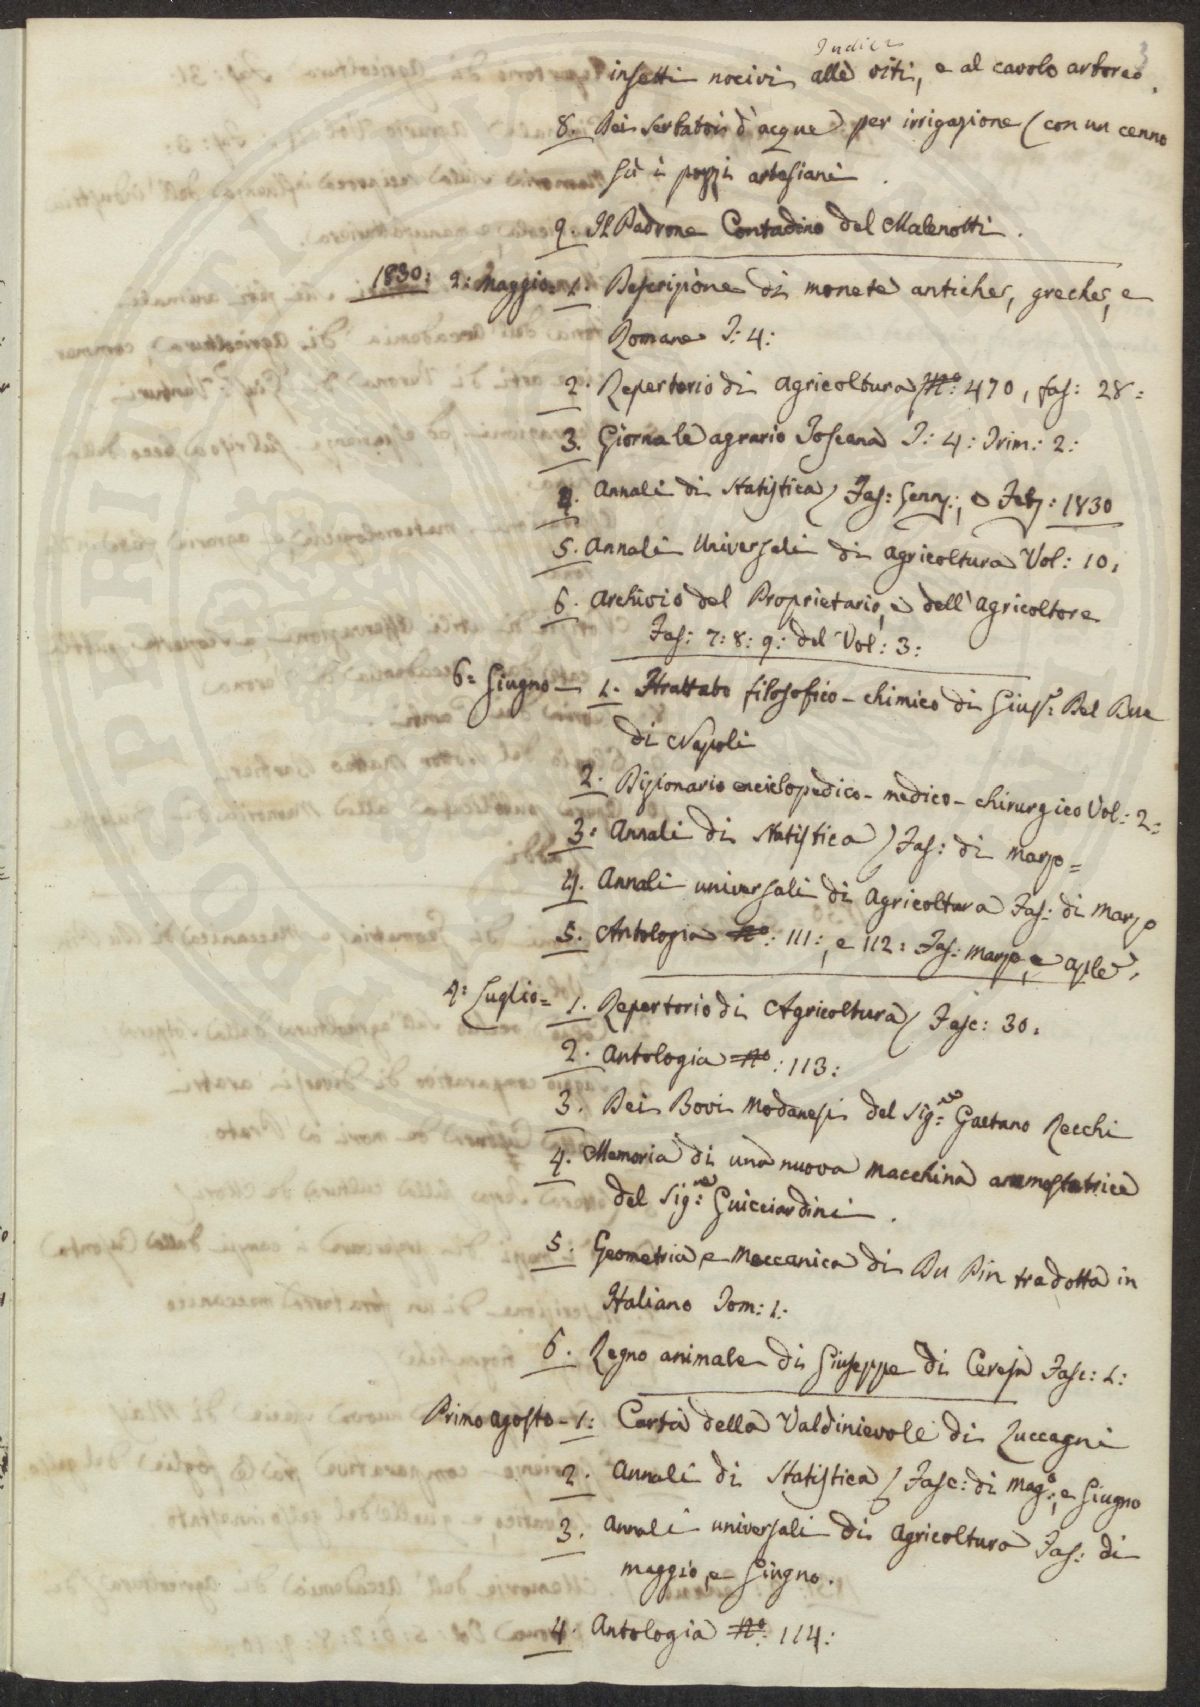 Indica
3
insetti nocivi alle viti, e al cavolo arboreo.
8. Dei Serbatoi d'acque per irrigazione (con un cenno
sù i pozzi artesiani.
9. Il Padrone Contadino del Malenotti.
1830: 2: Maggio= 1. Descripione di monete antiche, greche, e
Romane T: 4:
2. Repertorio di agricoltura No: 470, fas: 28:
3. Giornale agrario Toscano T: 4: Trim: 2:
4. Annali di Statistica Fas: Genn:, e Feb: 1830
5. Annali Universali di agricoltura Vol: 10.
6. Archivio del Proprietario, e dell'agricoltore
Fas: 7: 8: 9: del Vol: 3:
6= Giugno— 1. Trattato filosofico-chimico di Giuse: Del Bue
di Napoli
2. Dizionario enciclopedico-medico-chirurgico Vol: 2:
3: Annali di Statistica Fas: di marzo=
4. Annali universali di Agricoltura Fas: di Marzo
5. Antologia No: 111:, e 112: Fas: Marzo, e Aple.
4: Luglio= 1. Repertorio di Agricoltura Fasc: 30.
2. Antologia No: 113:
3. Dei Bovi Modanesi del Sig:re Gaetano Recchi
4. Memoria di una nuova macchina ammostatrice
del Sig:re Guicciardini.
5. Geometria, e Meccanica di Du Pin tradotta in
Italiano Tom: 1:
6. Regno animale di Giuseppe di Ceresa Fasc: 1:
Primo agosto- 1: Carta della Valdinievole di Zuccagni
2. Annali di Statistica Fasc: di Mago:, e Giugno
3. Annali universali di agricoltura Fas: di
maggio, e Giugno.
4. Antologia No: 114: